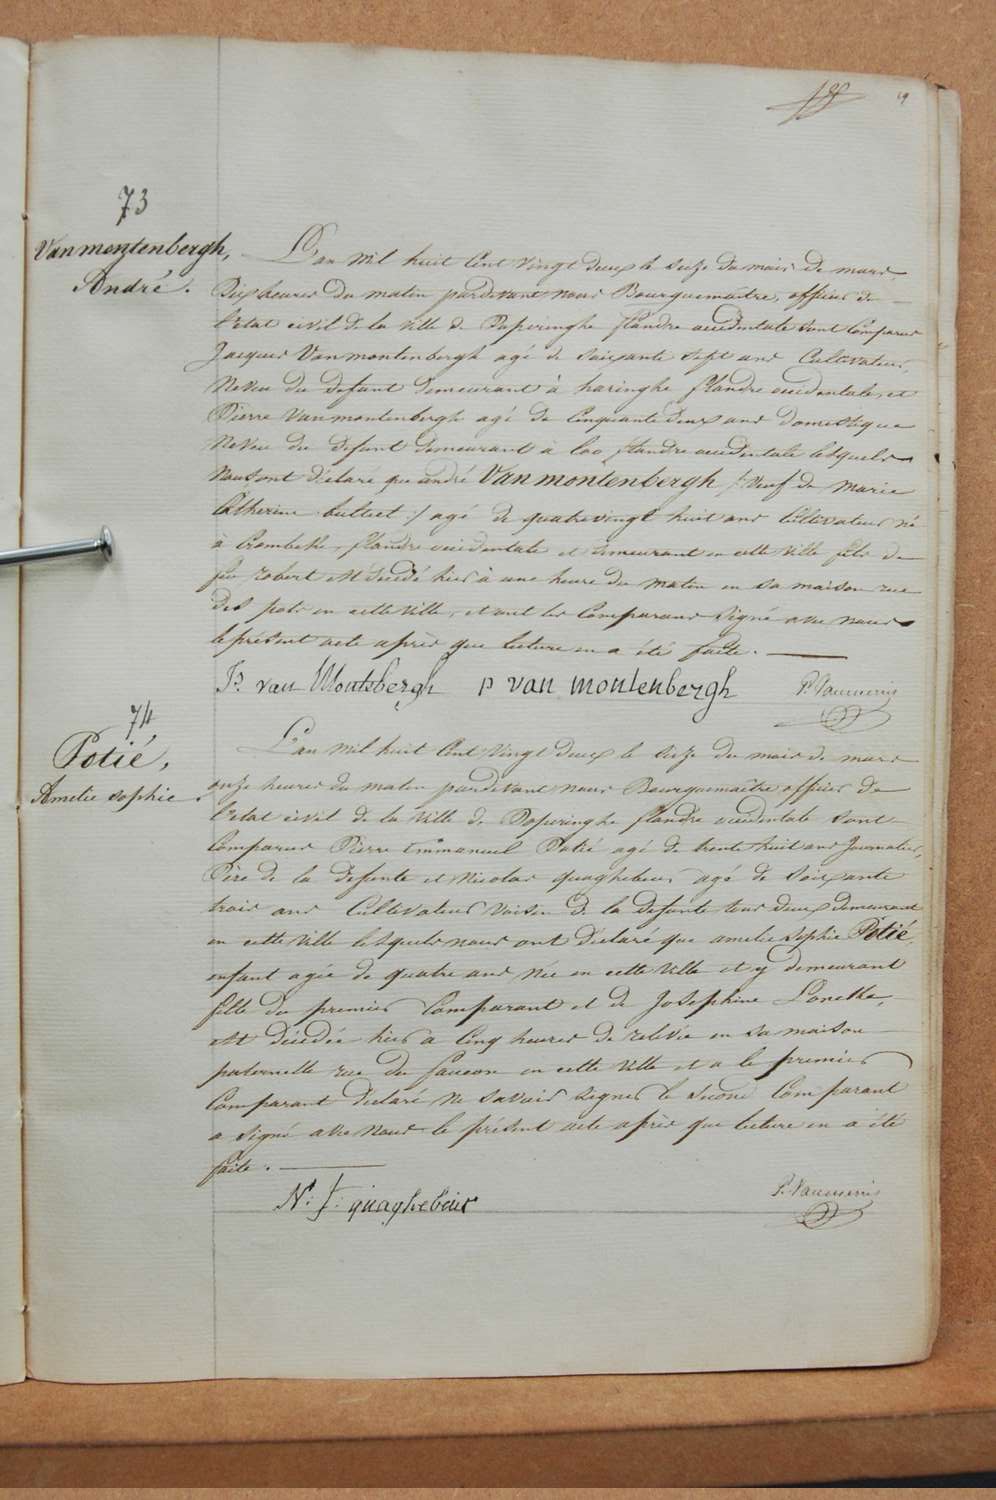 19
73
Vanmontenbergh,
André.
L'an mil huit Cent vingt deux le seize du mois de mars
Dix heures du matin pardevant nous Bourguemaitre, officier de
l'Etat civil de la ville de Poperinghe flandre occidentale sont Comparus
Jacques Vanmontenbergh agé de soixante sept ans Cultivateur,
Neveu du defunt demeurant à haringhe flandre occidentale, et
Pierre Vanmontenbergh agé de Cinquante deux ans domestique
Neveu du Defunt demeurant à Loo flandre occidentale lesquels
Nous ont déclaré que andré Vanmontenbergh /: veuf de Marie
Catherine :/ agé de quatrevingt huit ans Cultivateur né
à Crombeke, flandre occidentale et demeurant en cette ville fils de
feu robert est décédé hier à une heure du matin en sa maison rue
des pots en cette ville, et ont les Comparans signé avec nous
le présent acte après que lecture en a été faite.
Js. van Montebergh p van montenbergh P. Vanmerris
74
Potié,
Amelie sophie
L'an mil huit Cent vingt deux le seize du mois de mars
onze heures du matin pardevant nous Bourguemaître officier de
l'Etat civil de la ville de Poperinghe flandre occidentale sont
Comparus Pierre Emmanuel Potié agé de trente huit ans Journalier,
Père de la defunte et Nicolas quaghebeur agé de soixante
trois ans Cultivateur voisin de la defunte tous deux demeurant
en cette ville lesquels nous ont déclaré que amelie sophie Potié,
enfant agée de quatre ans née en cette ville et y demeurant
fille du premier Comparant et de Josephine
est décédée hier a Cinq heures de relevée en sa maison
paternelle rue du faucon en cette ville et a le premier
Comparant déclaré ne savoir signer le second Comparant
a signé avec nous le présent acte après que lecture en a été
faite.
N: f: quaghebeur P. Vanmerris